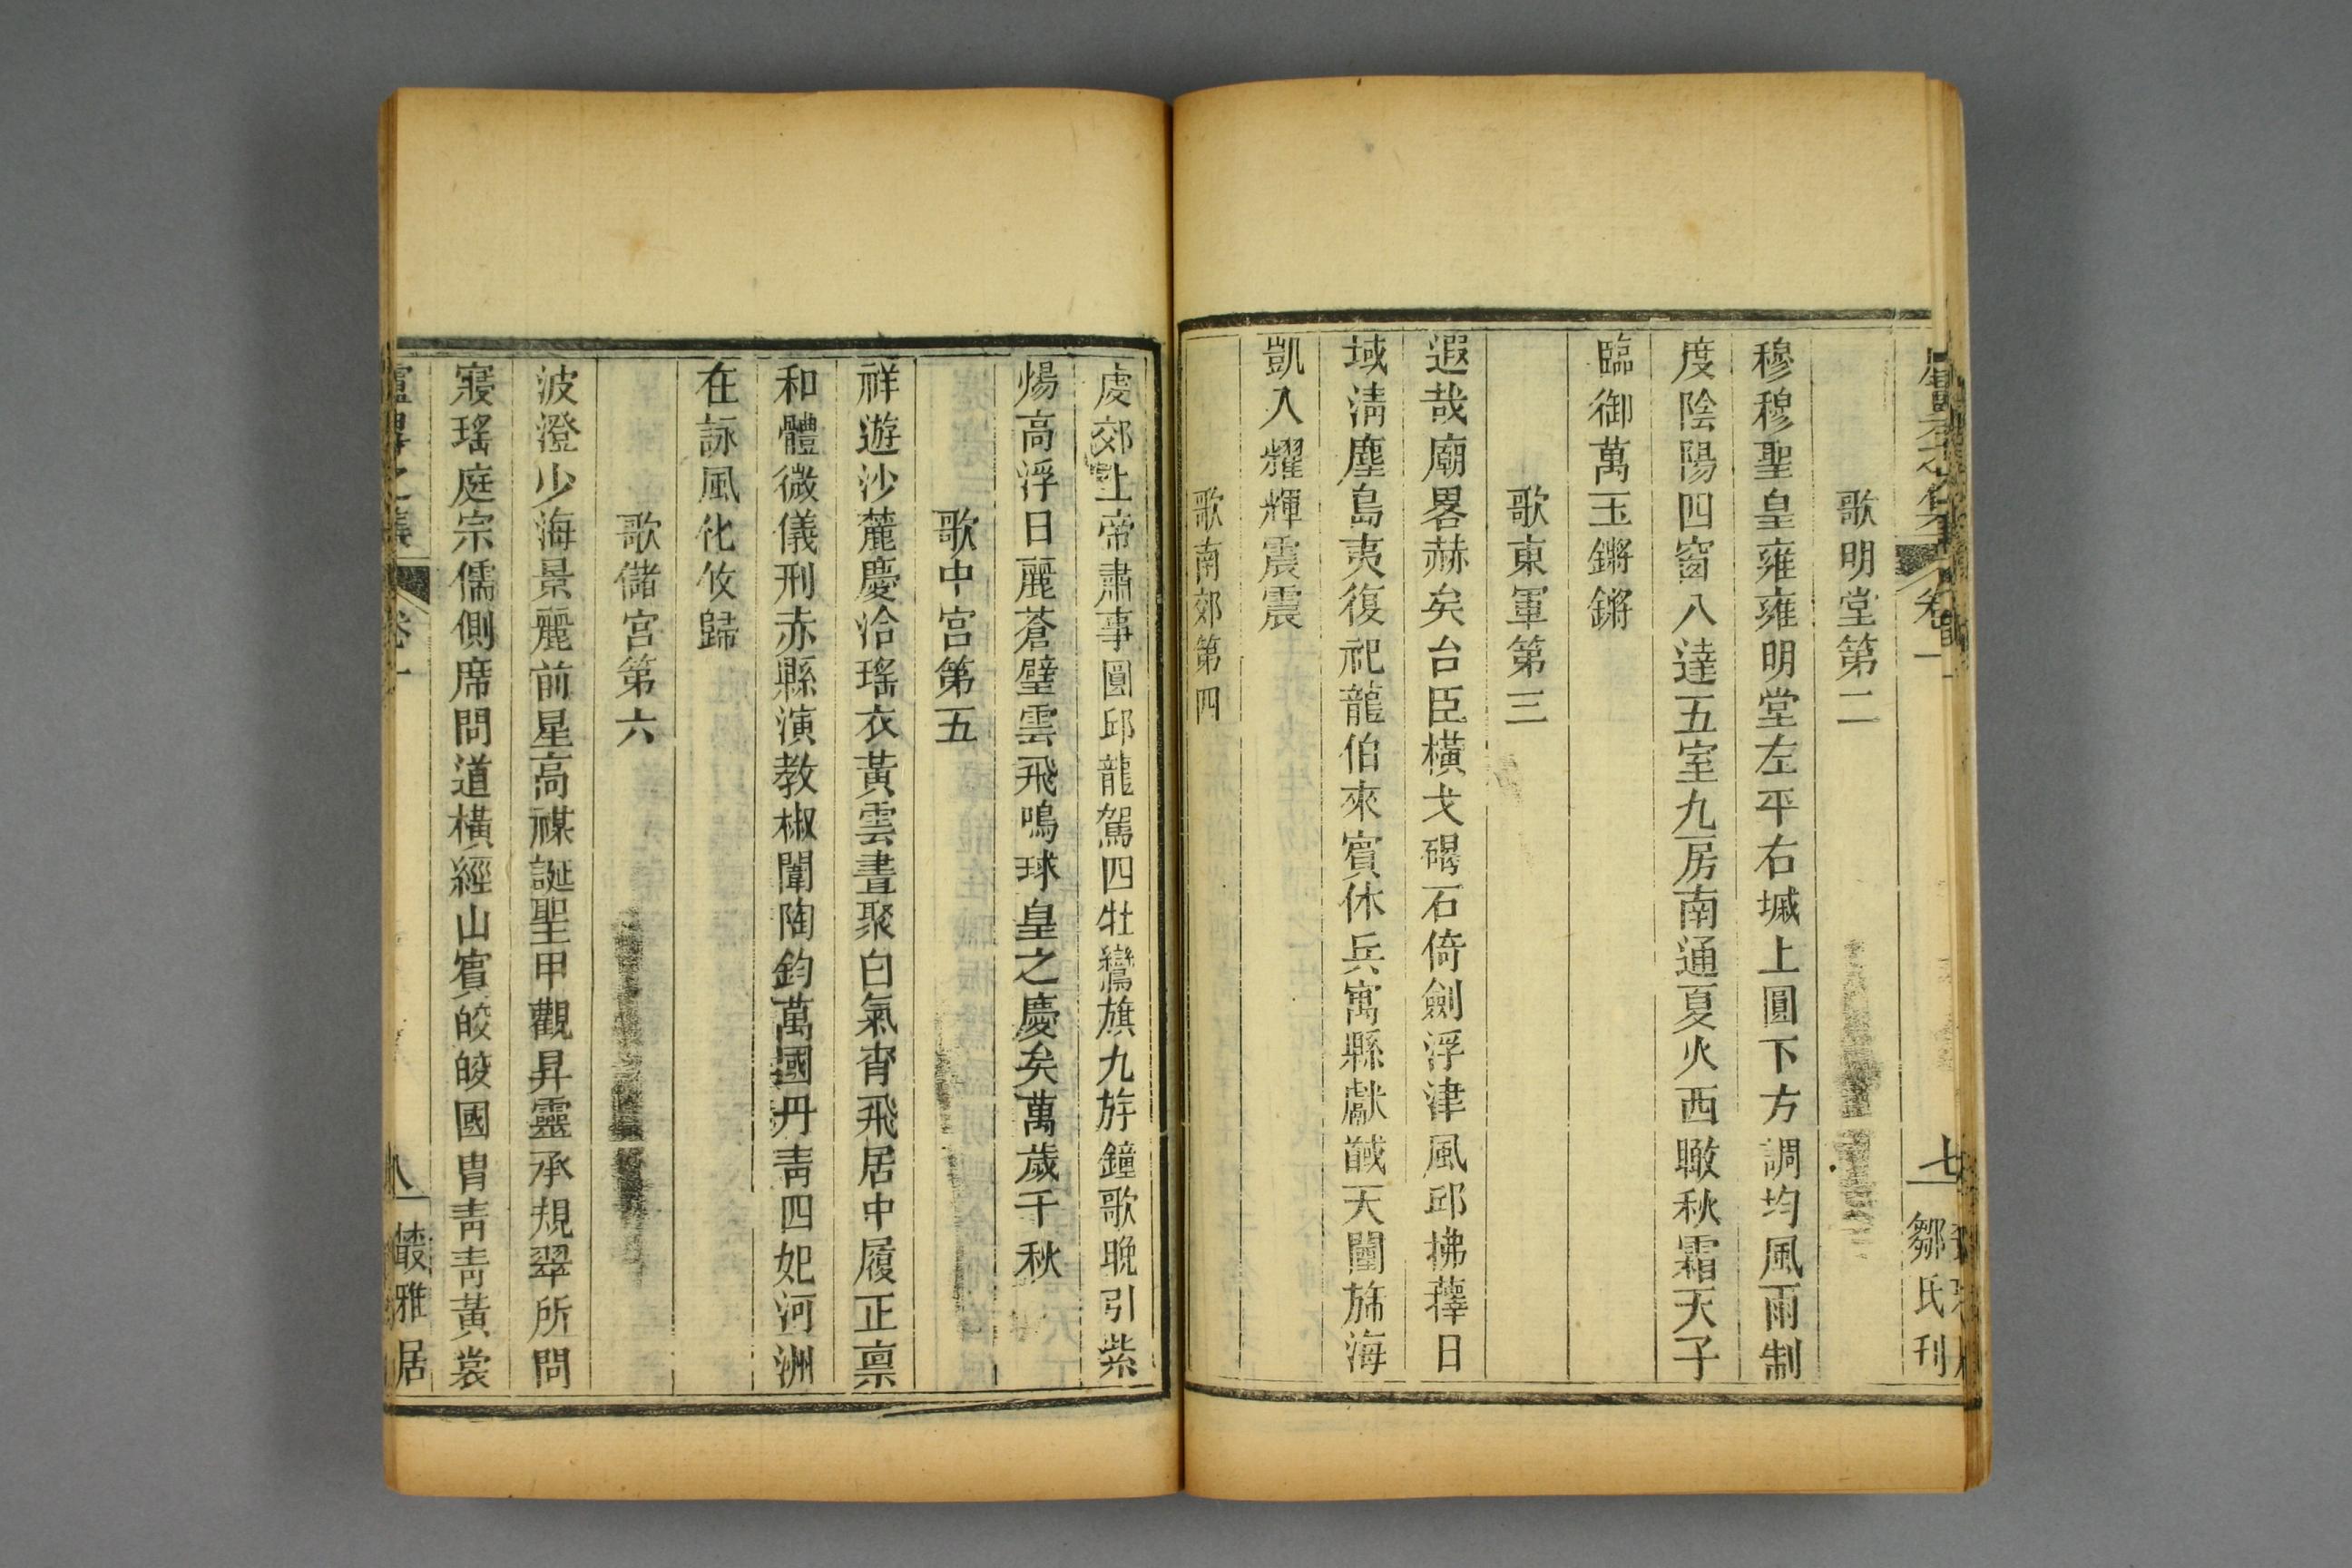 歌明堂第二
穆穆聖皇雍雍明堂左平右墄上圓下方調均風雨制
度陰陽四窗八達五室九房南通夏火西瞰秋霜天子
臨御萬玉鏘鏘
歌東軍第三
遐哉廟畧赫矣台臣橫戈碣石倚劍浮津風邱拂籜日
域清塵島夷復祀龍伯來賓休兵寓縣獻馘天闉旆海
凱入耀輝震震
歌南郊第四
虔郊上帝肅事圓邱龍駕四牡鸞旗九斿鐘歌晚引紫
煬高浮日麗蒼璧雲飛鳴球皇之慶矣萬歲千秋
歌中宮第五
祥遊沙麓慶洽瑤衣黃雲晝聚白氣宵飛居中履正稟
和體微儀刑赤縣演教椒闈陶鈞萬國丹青四妃河洲
在詠風化攸歸
歌儲宮第六
波澄少海景麗前星高禖誕聖甲觀昇靈承規翠所問
寢瑤庭宗儒側席問道橫經山賓皎皎國胄青青黃裳
卷一
七
鄒氏刊
卷一
八
叢雅居